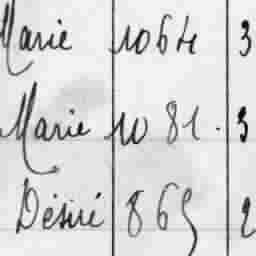 Marie 1064 3
Marie 1081. 3
Désiré 869 2